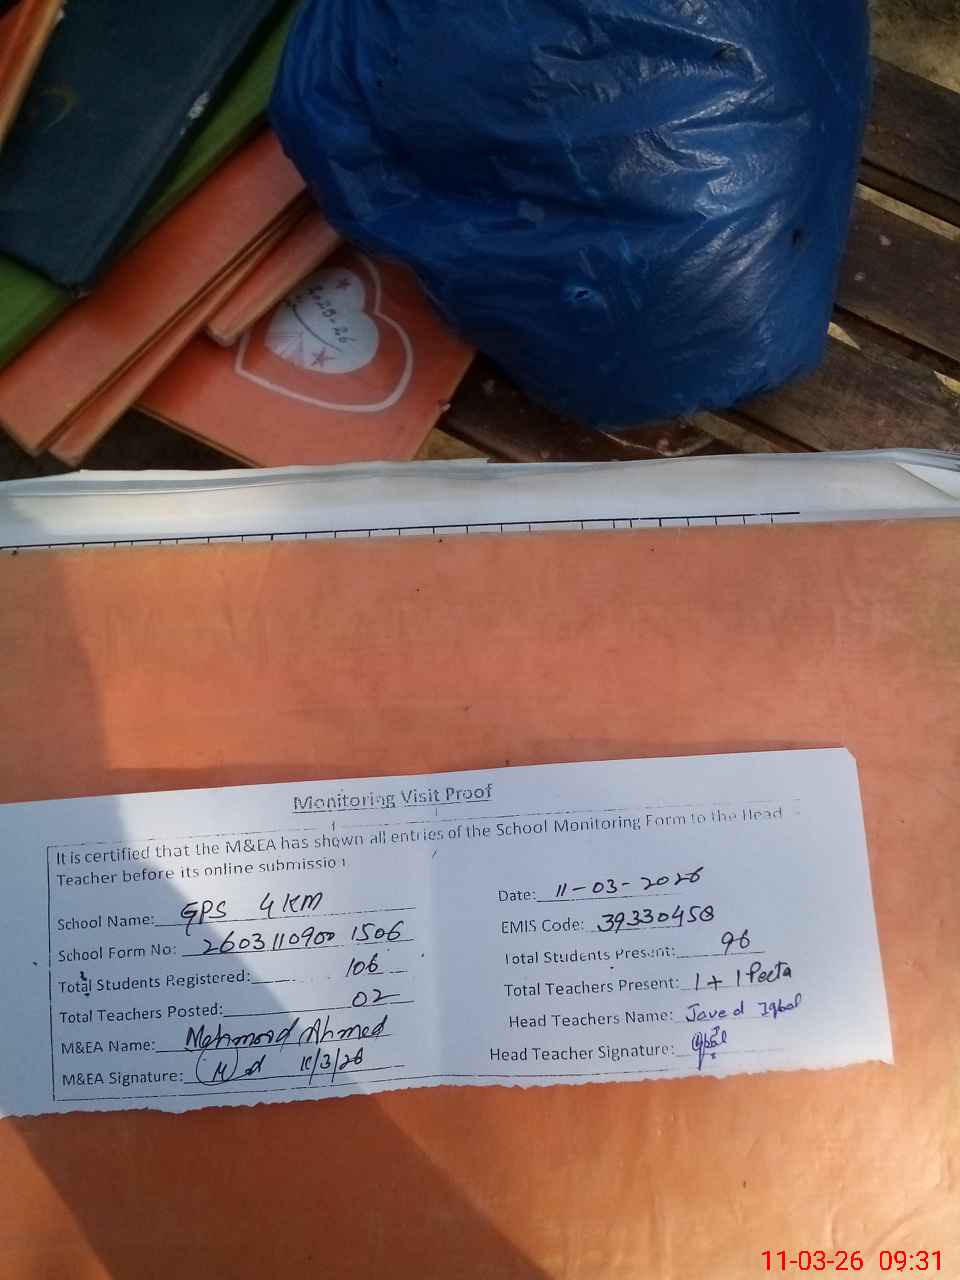 2025-26
Monitoring Visit Proof
It is certified that the M&EA has shown all entries of the School Monitoring Form to the Head
Teacher before its online submission
School Name: GPS 4 KM
Date: 11-03-2026
School Form No: 2603110900 1506
EMIS Code: 39330458
Total Students Registered: 106
Total Students Present: 96
Total Teachers Posted: 02
Total Teachers Present: 1 + 1 Peeta
M&EA Name: Mehmood Ahmed
Head Teachers Name: Javed Iqbal
M&EA Signature: 11/3/26
Head Teacher Signature: Iqbal
11-03-26 09:31